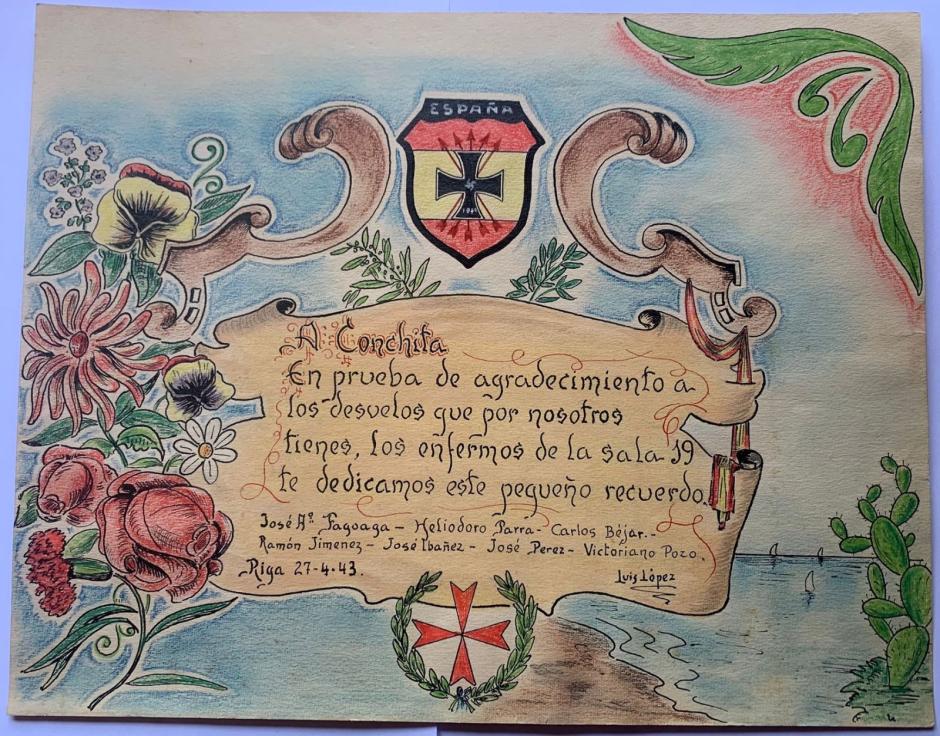 ESPAÑA
1941
A Conchita
En prueba de agradecimiento a
los desvelos que por nosotros
tienes, los enfermos de la sala 19
te dedicamos este pequeño recuerdo.
José Aº. Fagoaga - Heliodoro Parra - Carlos Béjar.-
Ramón Jimenez - José Ibañez - José Perez - Victoriano Pozo.
Riga 27-4-43.
Luis López